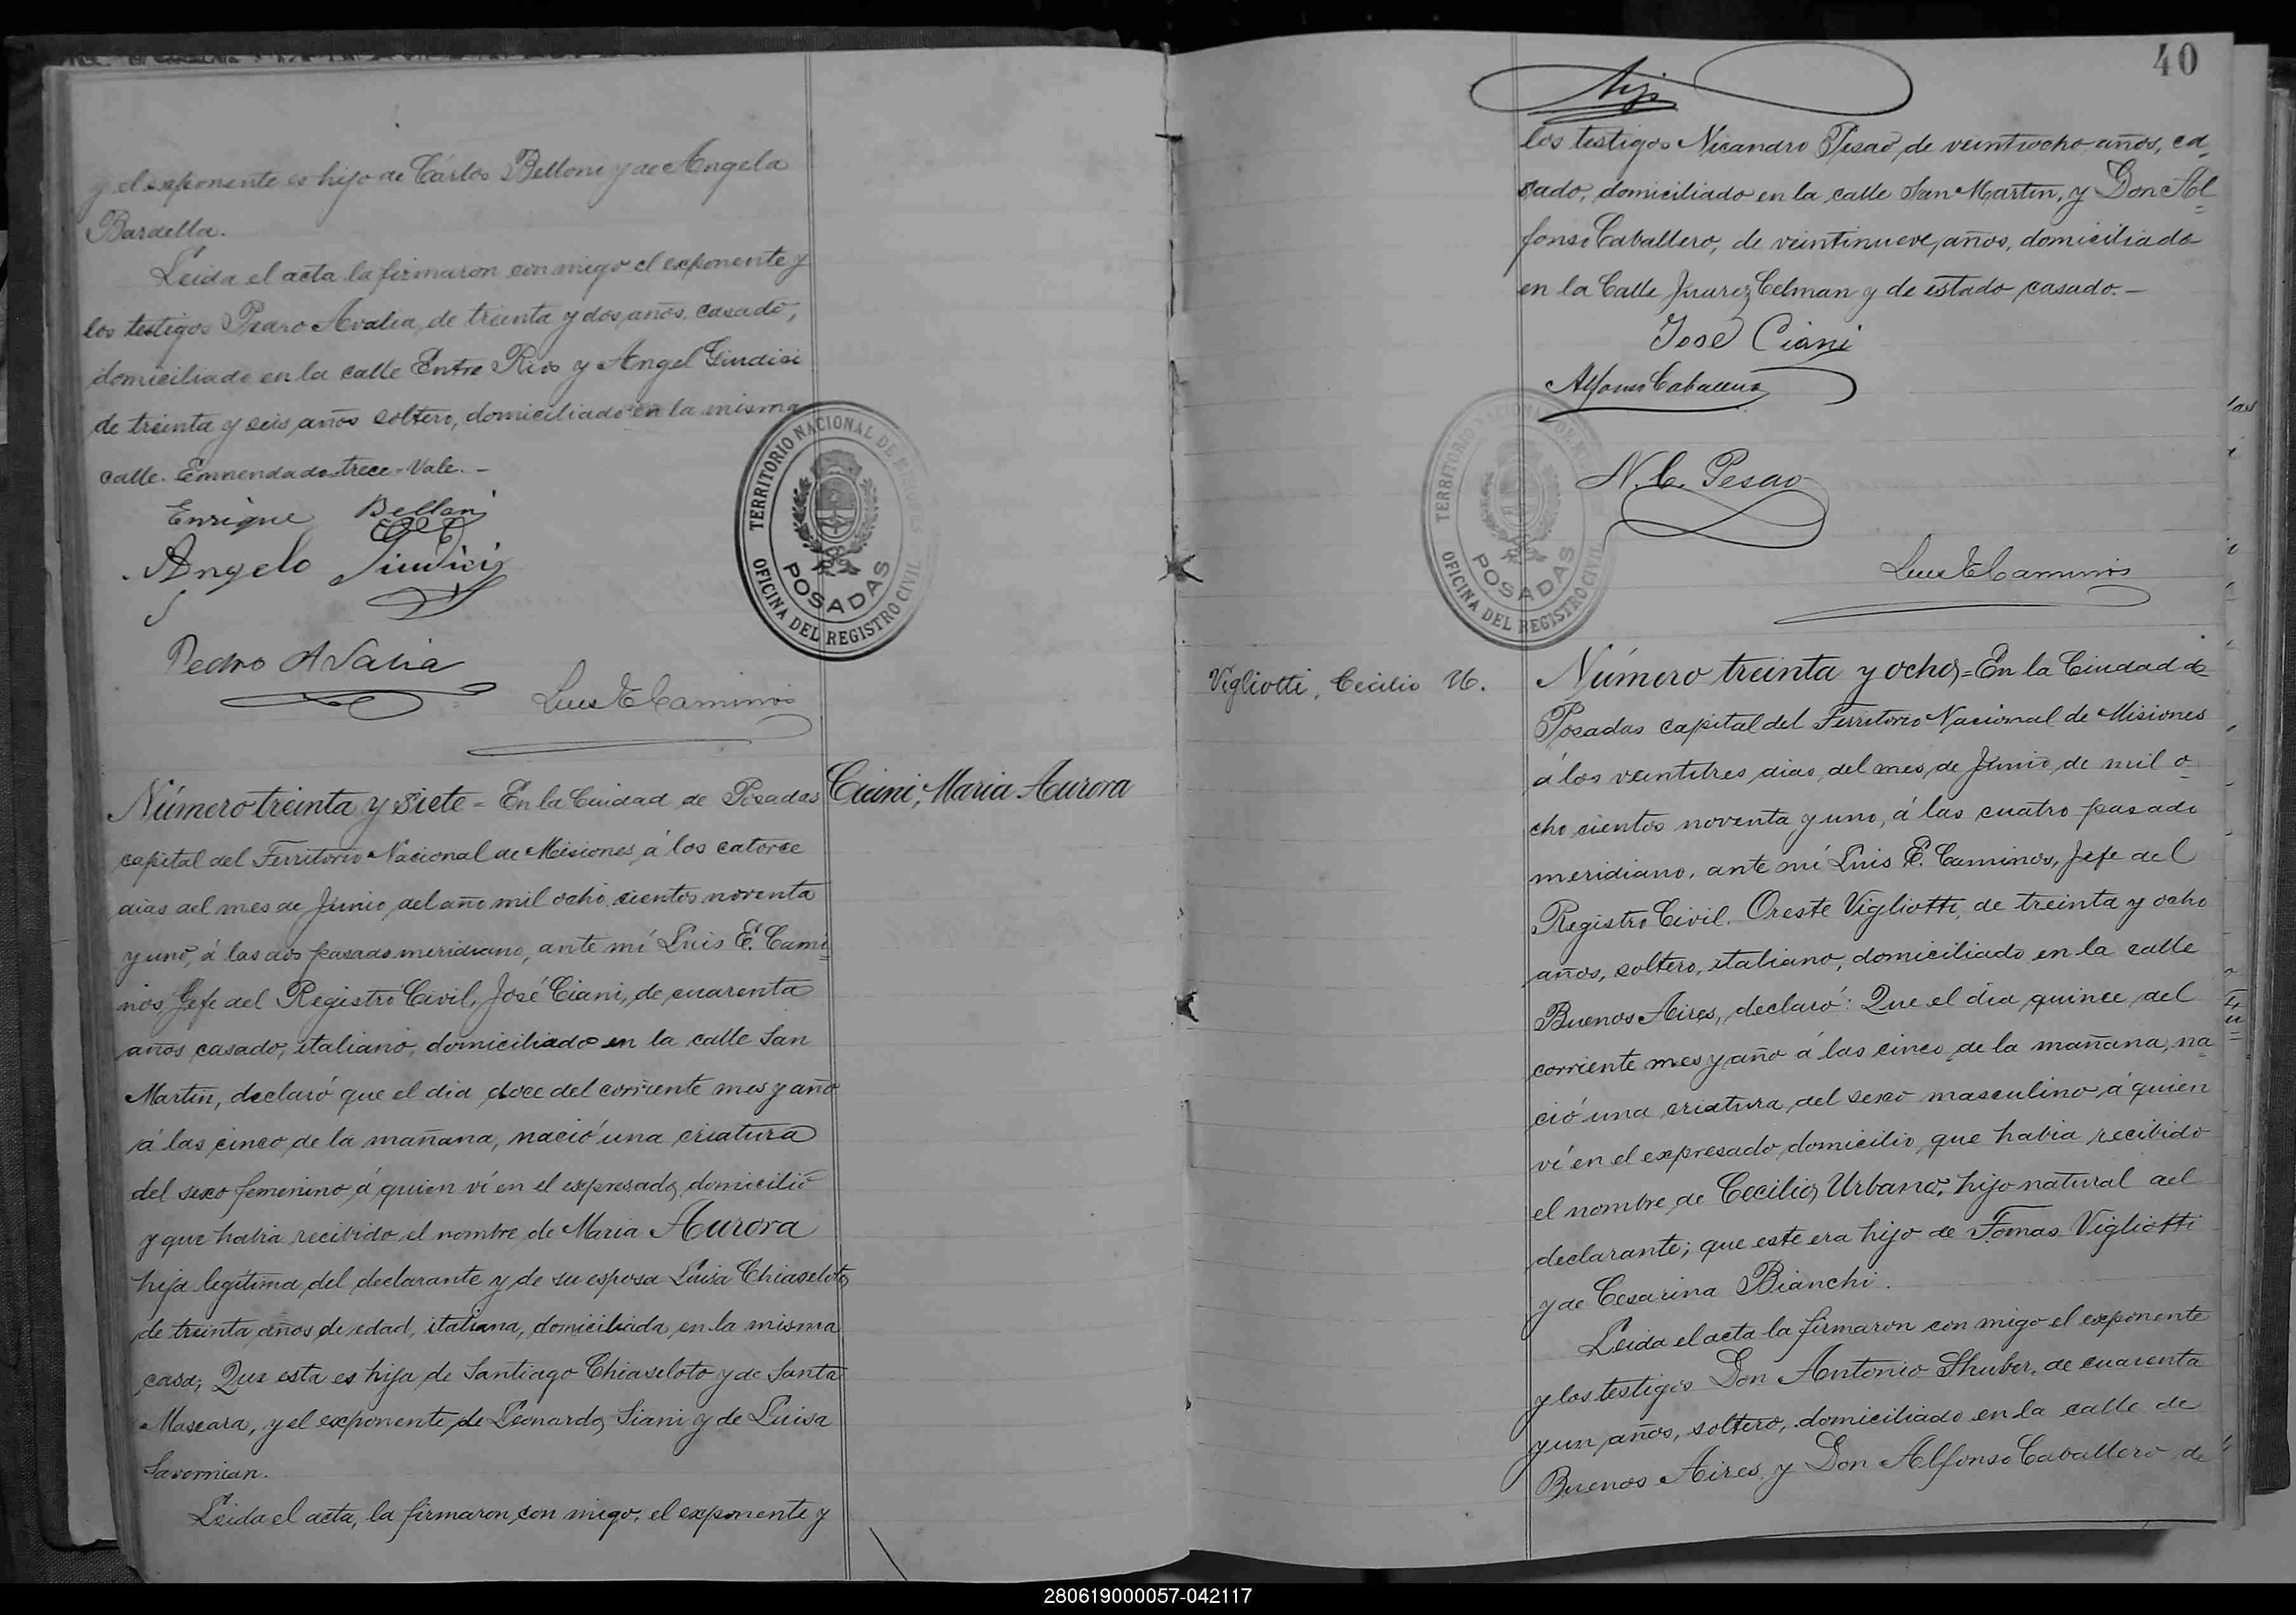 y el exponente es hijo de Cárlos Belloni y de Angela
Bardella.
Leida el acta la firmaron con migo el exponente y
los testigos Pedro Avalia, de treinta y dos años, casado,
domiciliado en la calle Entre Rios y Angel Giudici
de treinta y seis años soltero, domiciliado en la misma
calle. Enmendado=trece=Vale.—
Enrique Belloni
Angelo Giudici
Pedro Avalia
Luis E Caminos
TERRITORIO NACIONAL DE MISIONES
POSADAS
OFICINA DEL REGISTRO CIVIL
Número treinta y siete = En la Ciudad de Posadas
Ciani, Maria Aurora
capital del Territorio Nacional de Misiones, á los catorce
dias del mes de Junio del año mil ocho cientos noventa
y uno, á las dos pasado meridiano, ante mí Luis E. Cami=
nos Gefe del Registro Civil, José Ciani, de cuarenta
años casado, italiano, domiciliado en la calle San
Martin, declaró que el dia doce del corriente mes y año
á las cinco de la mañana, nació una criatura
del sexo femenino á quien ví en el expresado domicilio
y que habia recibido el nombre de Maria Aurora
hija legítima del declarante y de su esposa Luisa Chiaseloto
de treinta años de edad, italiana, domiciliada en la misma
casa; Que esta es hija de Santiago Chiaseloto y de Santa
Mascara, y el exponente de Leonardo Siani y de Luisa
Savornian.
Leida el acta, la firmaron con migo, el exponente y
40
los testigos Nicandro Pesao, de veintiocho años, ca=
sado, domiciliado en la calle San Martin, y Don Al=
fonso Caballero, de veintinueve años, domiciliado
en la Calle Juarez Celman y de estado casado.—
José Ciani
Alfonso Caballero
N. C. Pesao
Luis E Caminos
TERRITORIO NACIONAL DE MISIONES
POSADAS
OFICINA DEL REGISTRO CIVIL
Vigliotti, Cecilio U.
Número treinta y ocho = En la Ciudad de
Posadas capital del Territorio Nacional de Misiones
á los veintitres dias del mes de Junio de mil o=
cho cientos noventa y uno, á las cuatro pasado
meridiano, ante mí Luis E. Caminos, Jefe del
Registro Civil. Oreste Vigliotti, de treinta y ocho
años, soltero, italiano, domiciliado en la calle
Buenos Aires, declaró: Que el dia quince del
corriente mes y año á las cinco de la mañana, na=
ció una criatura del sexo masculino á quien
ví en el expresado domicilio, que habia recibido
el nombre de Cecilio Urbano, hijo natural del
declarante; que este era hijo de Tomas Vigliotti
y de Cesarina Bianchi.
Leida el acta la firmaron con migo el exponente
y los testigos Don Antonio Shuber, de cuarenta
y un años, soltero, domiciliado en la calle de
Buenos Aires y Don Alfonso Caballero de
280619000057-042117